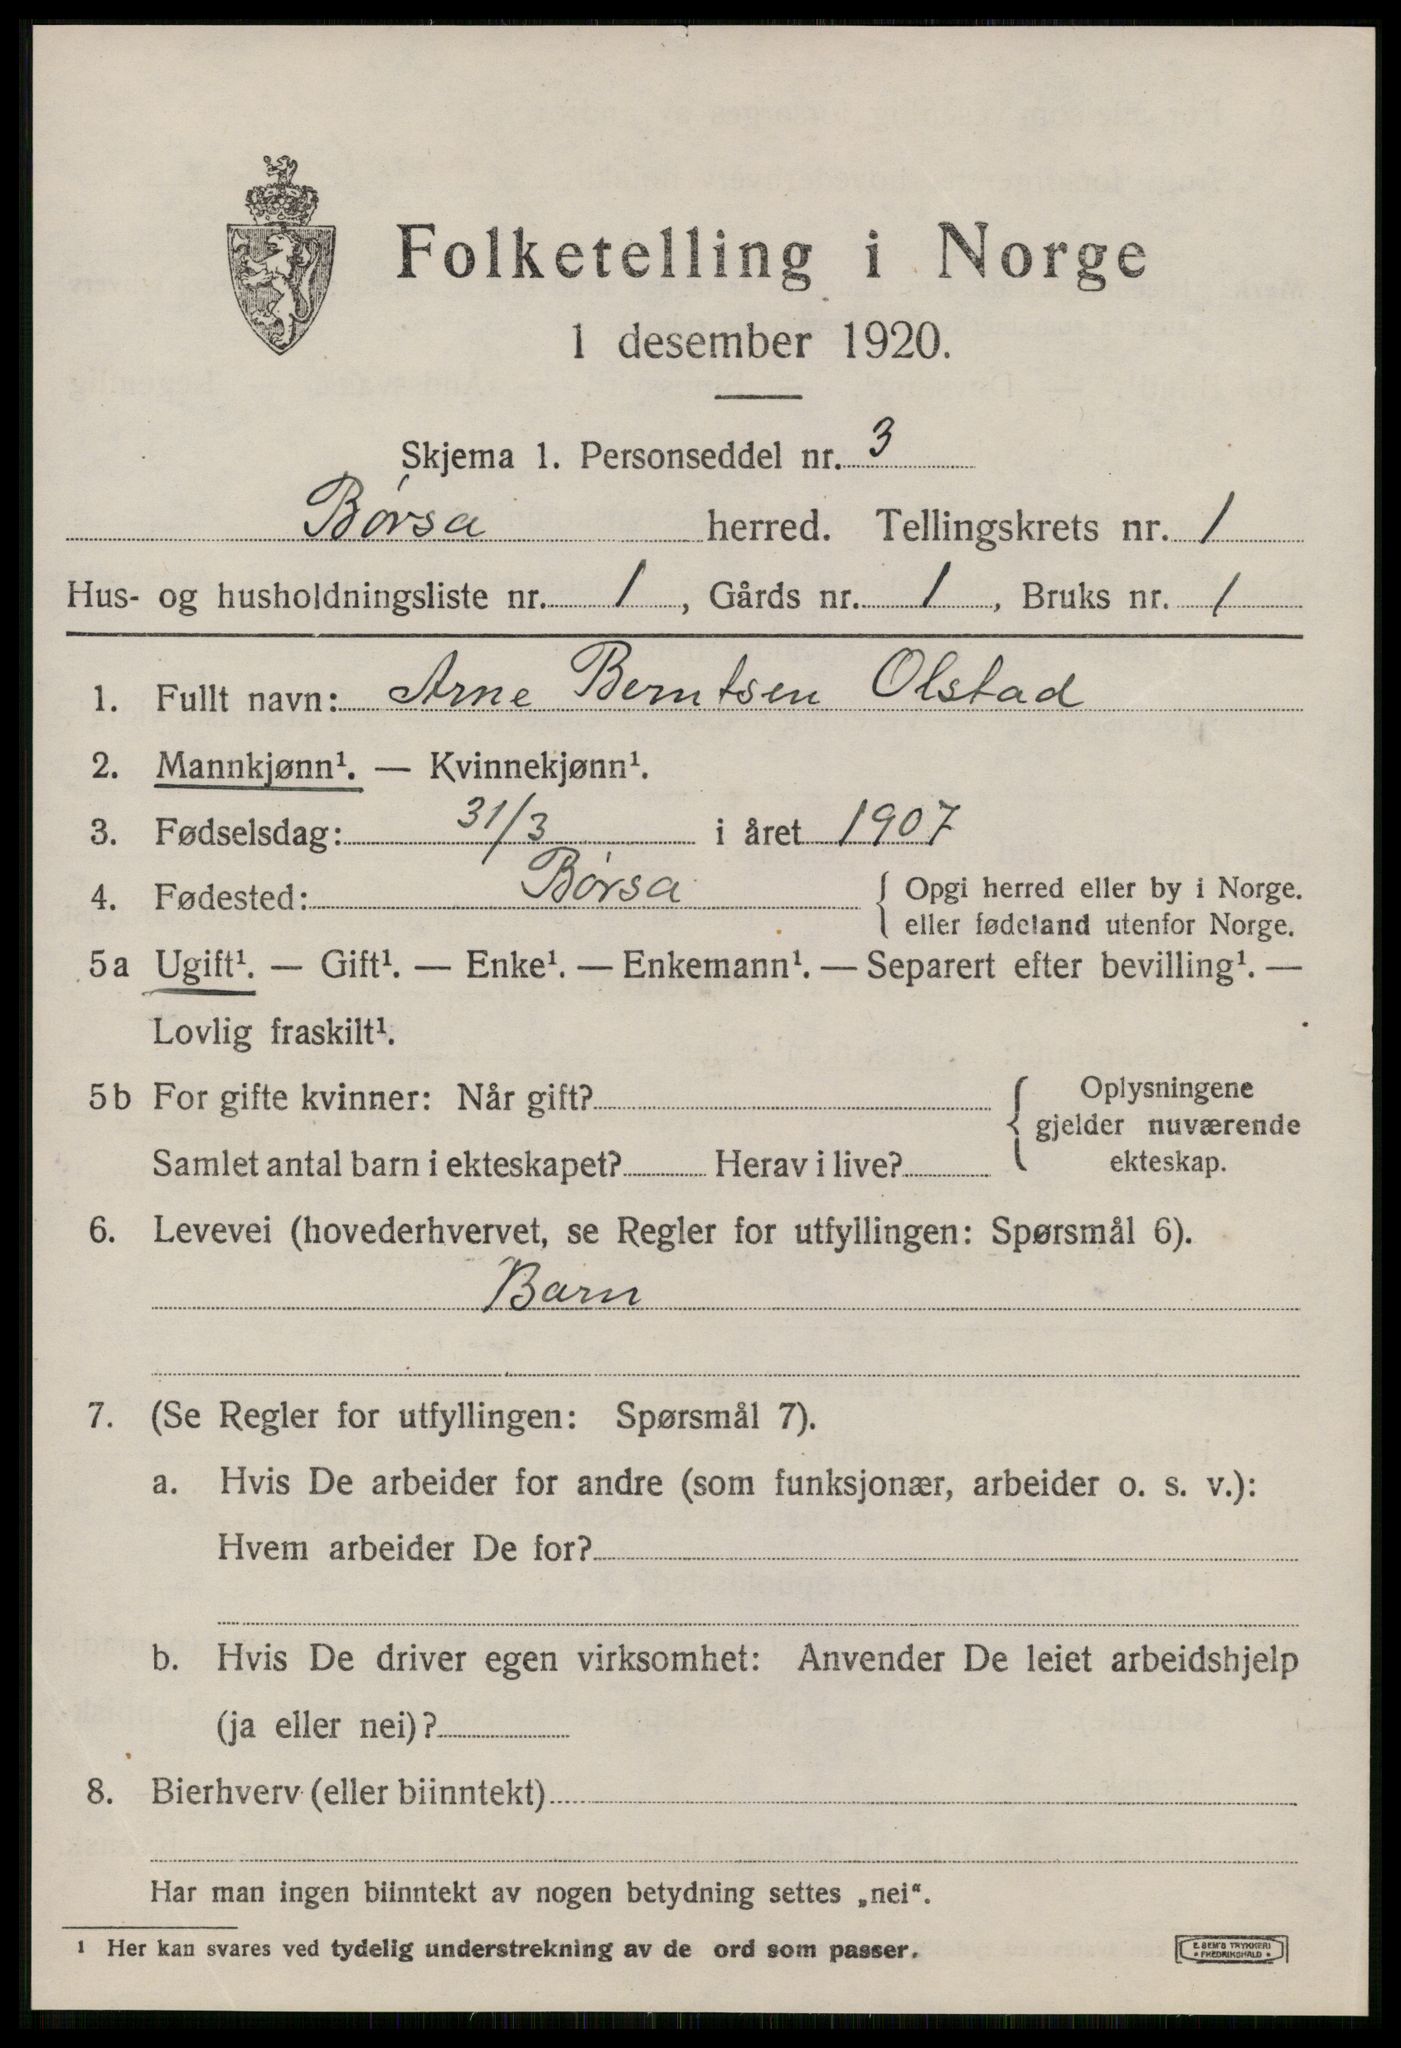 Folketelling i Norge
1 desember 1920.
Skjema 1. Personseddel nr. 3
Børsa herred. Tellingskrets nr. 1
Hus- og husholdningsliste nr. 1, Gårds nr. 1, Bruks nr. 1
1. Fullt navn: Arne Berntsen Olstad
2. Mannkjønn¹. — Kvinnekjønn¹.
3. Fødselsdag: 31/3 i året 1907
4. Fødested: Børsa { Opgi herred eller by i Norge.
eller fødeland utenfor Norge.
5a Ugift¹. — Gift¹. — Enke¹. — Enkemann¹. — Separert efter bevilling¹. —
Lovlig fraskilt¹.
5b For gifte kvinner: Når gift? { Oplysningene
gjelder nuværende
Samlet antal barn i ekteskapet? Herav i live? ekteskap.
6. Levevei (hovederhvervet, se Regler for utfyllingen: Spørsmål 6).
Barn
7. (Se Regler for utfyllingen: Spørsmål 7).
a. Hvis De arbeider for andre (som funksjonær, arbeider o. s. v.):
Hvem arbeider De for?
b. Hvis De driver egen virksomhet: Anvender De leiet arbeidshjelp
(ja eller nei)?
8. Bierhverv (eller biinntekt)
Har man ingen biinntekt av nogen betydning settes „nei“.
¹ Her kan svares ved tydelig understrekning av de ord som passer.
E. SEM'S TRYKKERI
* FREDRIKSHALD *